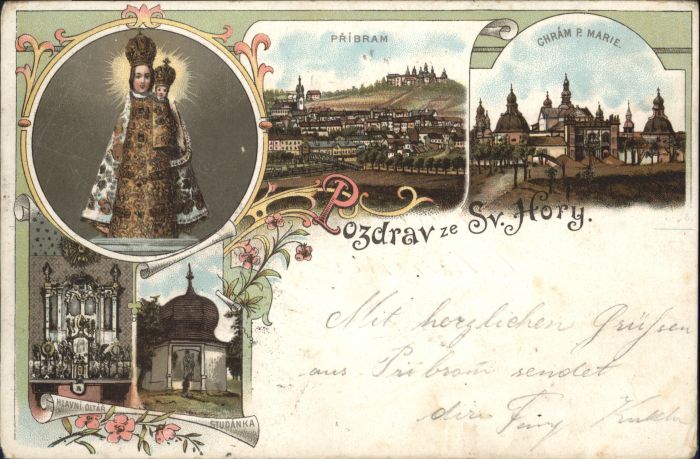 PŘÍBRAM
CHRÁM P. MARIE.
Pozdrav ze Sv. Hory.
HLAVNÍ OLTÁŘ
STUDÁNKA
Mit herzlichen Grüssen
aus Příbram sendet